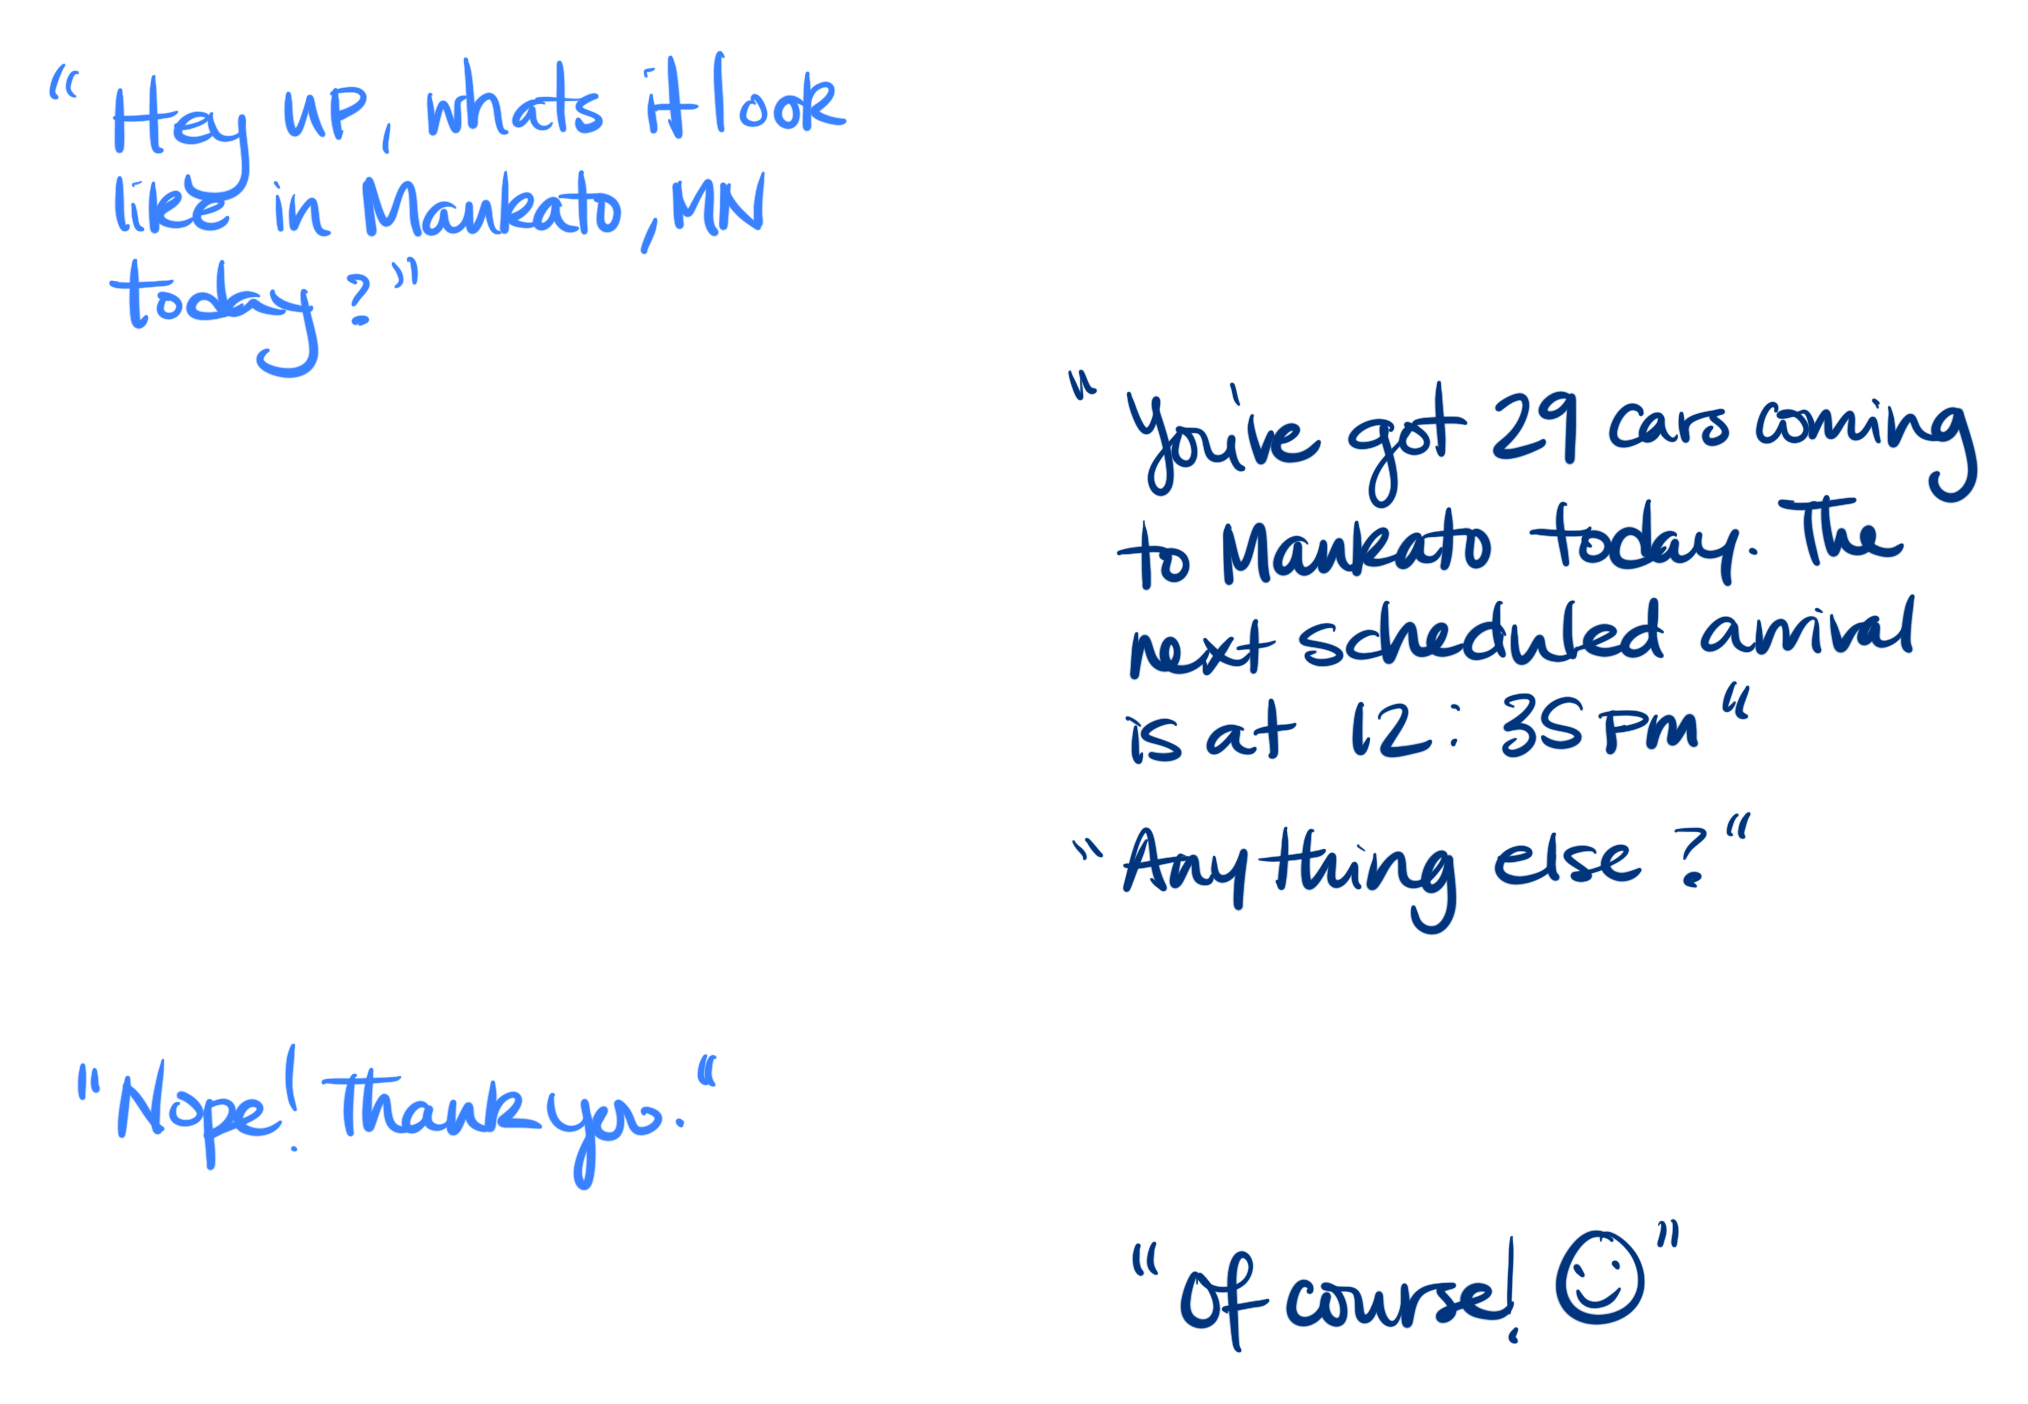 "Hey UP, whats it look
like in Mankato, MN
today?"
"You've got 29 cars coming
to Mankato today. The
next scheduled arrival
is at 12:35PM"
"Anything else?"
"Nope! Thank you."
"Of course! ☺"